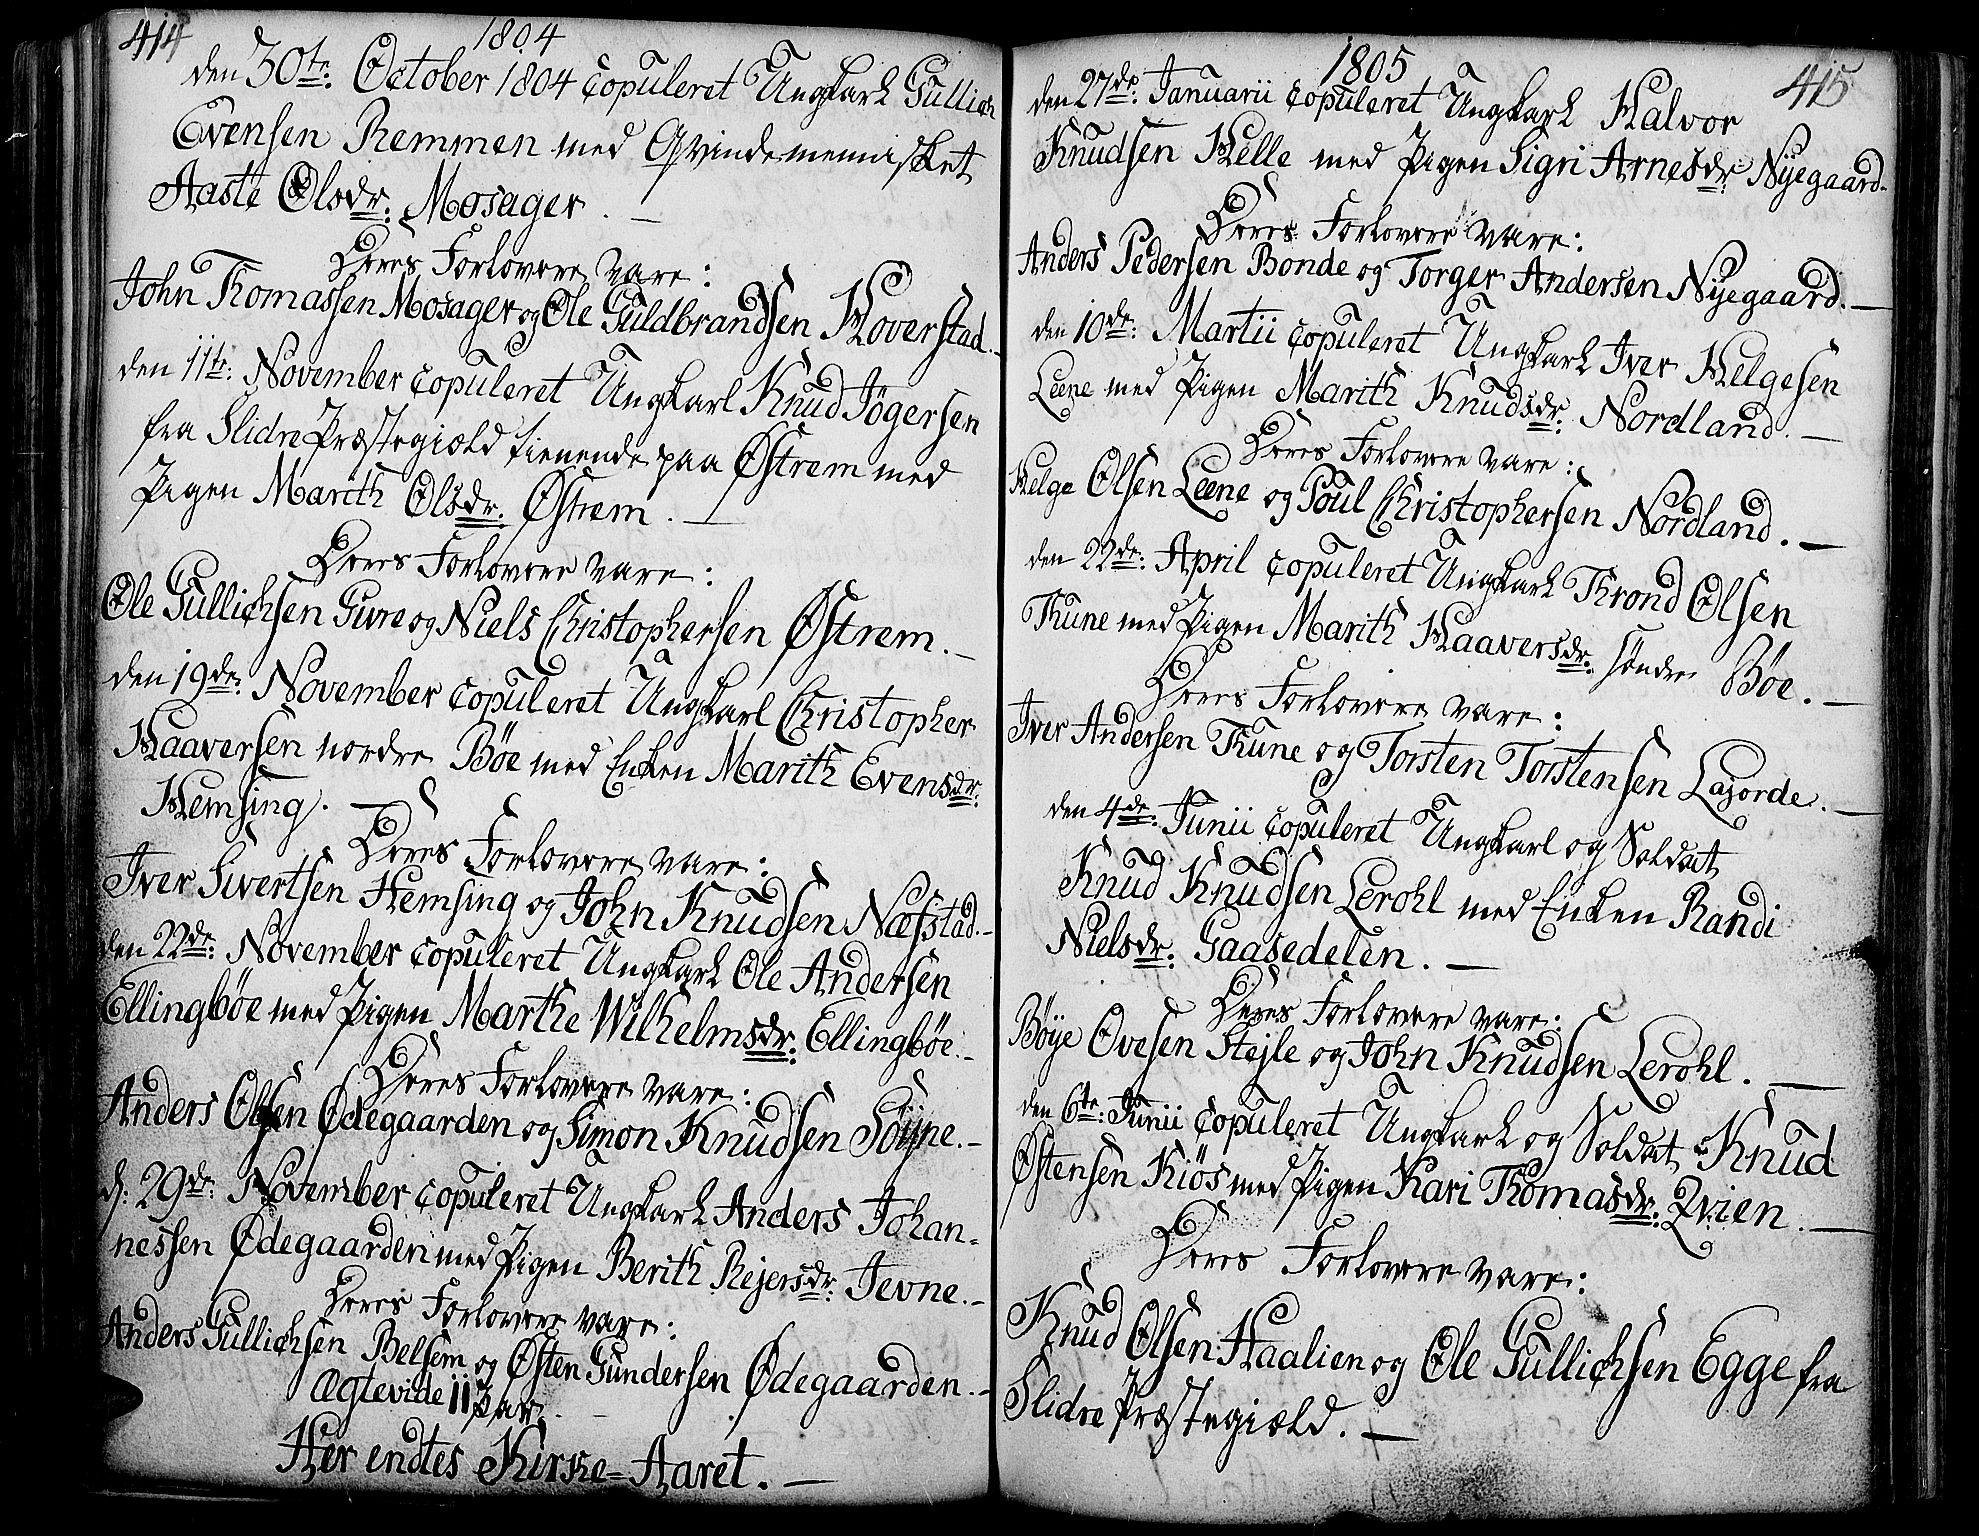 414
1804
den 30te: October 1804 copuleret Ungkarl Gullich
Evensen Remmen med Qvindemennisket
Aaste Olsdr. Mosager. —
Deres Forlovere vare:
John Thomassen Mosager og Ole Guldbrandsen Hoverstad. -
den 11te: November copuleret Ungkarl Knud Jögersen
fra Slidre Præstegield tienende paa Østrem med
Pigen Marith Olsdr. Østrem. —
Deres Forlovere vare:
Ole Gullichsen Gure og Niels Christophersen Østrem. -
den 19de: November copuleret Ungkarl Christopher
Haaversen nordre Bøe med Enken Marith Evensdr.
Hemsing. —
Deres Forlovere vare:
Iver Sivertsen Hemsing og John Knudsen Næfstad. -
den 22de: November copuleret Ungkarl Ole Andersen
Ellingbøe med Pigen Marthe Wilhelmsdr. Ellingbøe. -
Deres Forlovere vare:
Anders Olsen Ødegaarden og Simon Knudsen Söyne. -
d: 29de: November copuleret Ungkarl Anders Johan-
nessen Ødegaarden med Pigen Berith Rejersdr. Jevne. -
Deres Forlovere vare:
Anders Gullichsen Belsem og Østen Gundersen Ødegaarden. -
Ægtevide 11 Par. -
Her endtes Kirke-Aaret. —
1805
415
den 27de: Januarii copuleret Ungkarl Halvor
Knudsen Helle med Pigen Sigri Arnesdr. Nyegaard.
Deres Forlovere vare:
Anders Pedersen Bonde og Torger Andersen Nyegaard. —
den 10de: Martii copuleret Ungkarl Iver Helgesen
Leene med Pigen Marith Knudsdr. Nordland. —
Deres Forlovere vare:
Helge Olsen Leene og Poul Christophersen Nordland. —
den 22de: April copuleret Ungkarl Thrond Olsen
Thune med Pigen Marith Haaversdr. söndre Bøe. —
Deres Forlovere vare:
Iver Andersen Thune og Torsten Torstensen Lajorde. —
den 4de: Junii copuleret Ungkarl og Soldat
Knud Knudsen Lerohl med Enken Randi
Nielsdr. Gaasedelen. —
Deres Forlovere vare:
Böye Ovesen Stejle og John Knudsen Lerohl. —
den 6te: Junii copuleret Ungkarl og Soldat Knud
Østensen Kiös med Pigen Kari Thomasdr. Qvien. —
Deres Forlovere vare:
Knud Olsen Haalien og Ole Gullichsen Egge fra
Slidre Præstegield. —